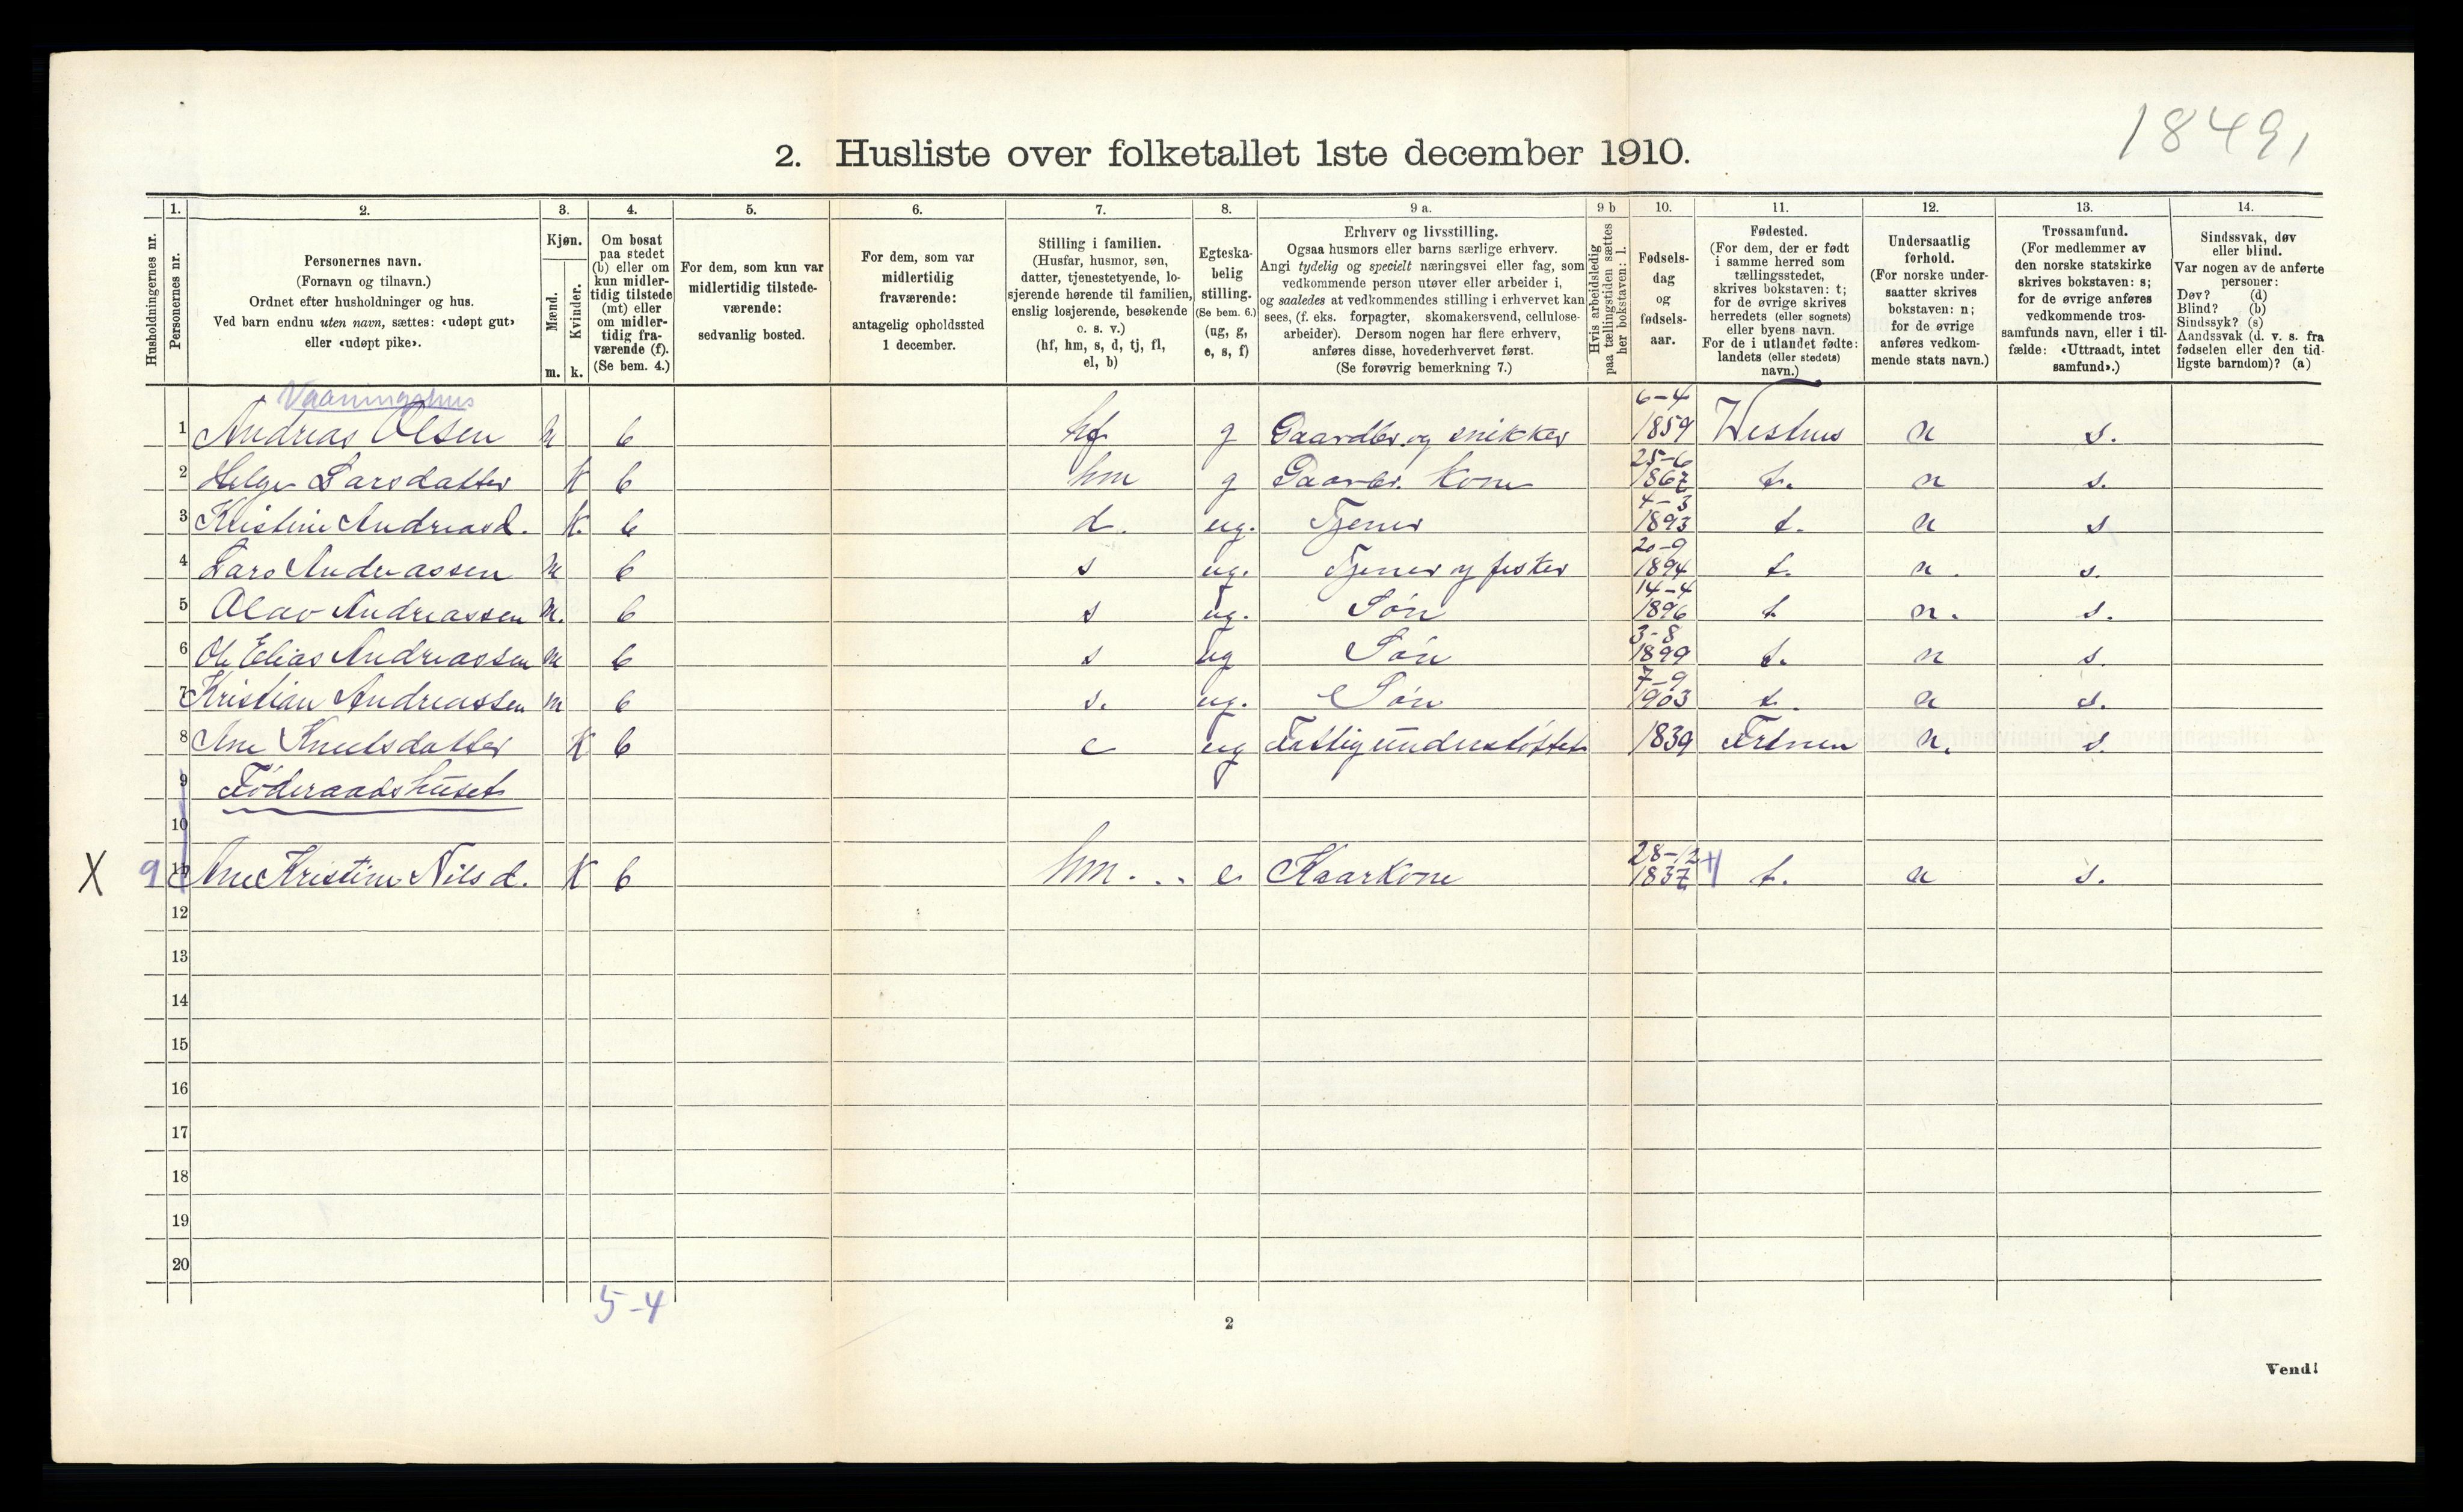 18491
2. Husliste over folketallet 1ste december 1910.
Husholdningernes nr.
1. Personernes nr.
2. Personernes navn. (Fornavn og tilnavn.) Ordnet efter husholdninger og hus. Ved barn endnu uten navn, sættes: «udøpt gut» eller «udøpt pike».
3. Kjøn. Mænd. m. Kvinder. k.
4. Om bosat paa stedet (b) eller om kun midlertidig tilstede (mt) eller om midlertidig fraværende (f). (Se bem. 4.)
5. For dem, som kun var midlertidig tilstedeværende: sedvanlig bosted.
6. For dem, som var midlertidig fraværende: antagelig opholdssted 1 december.
7. Stilling i familien. (Husfar, husmor, søn, datter, tjenestetyende, losjerende hørende til familien, enslig losjerende, besøkende o. s. v.) (hf, hm, s, d, tj, fl, el, b)
8. Egteskabelig stilling. (Se bem. 6.) (ug, g, e, s, f)
9 a. Erhverv og livsstilling. Ogsaa husmors eller barns særlige erhverv. Angi tydelig og specielt næringsvei eller fag, som vedkommende person utøver eller arbeider i, og saaledes at vedkommendes stilling i erhvervet kan sees, (f. eks. forpagter, skomakersvend, cellulosearbeider). Dersom nogen har flere erhverv, anføres disse, hovederhvervet først. (Se forøvrig bemerkning 7.)
9 b Hvis arbeidsledig paa tællingstiden sættes her bokstaven: l.
10. Fødselsdag og fødselsaar.
11. Fødested. (For dem, der er født i samme herred som tællingsstedet, skrives bokstaven: t; for de øvrige skrives herredets (eller sognets) eller byens navn. For de i utlandet fødte: landets (eller stedets) navn.)
12. Undersaatlig forhold. (For norske undersaatter skrives bokstaven: n; for de øvrige anføres vedkommende stats navn.)
13. Trossamfund. (For medlemmer av den norske statskirke skrives bokstaven: s; for de øvrige anføres vedkommende trossamfunds navn, eller i tilfælde: «Uttraadt, intet samfund».)
14. Sindssvak, døv eller blind. Var nogen av de anførte personer: Døv? (d) Blind? (b) Sindssyk? (s) Aandssvak (d. v. s. fra fødselen eller den tidligste barndom)? (a)
Vaaningshus
1 Andreas Olsen m b hf g Gaardbr. og snikker 6-4 1859 Veshus n s.
2 Helge Larsdatter k b hm g Gaarbr. Kone 25-6 1867 t. n s.
3 Kristine Andreasd. k. b d. ug. Tjener 4-3 1893 t. n s
4 Lars Andreassen m b s ug. Tjener og fisker 20-9 1894 t. n. s.
5 Olav Andreassen m. b s ug. Søn 14-4 1896 t n. s.
6 Ole Elias Andreassen m b s ug Søn 3-8 1899 t. n s.
7 Kristian Andreassen m b s. ug. Søn 7-9 1903 t. n s.
8 Ane Knutsdatter k b ug Fattigunderstøttet 1839 n. s.
9 Føderaadshuset
10
X 9 11 Ane Kristine Nilsd. k b hm. . . e. Kaarkone 28-12 1837 t. n s.
12
13
14
15
16
17
18
19
20
5-4
2
Vend!